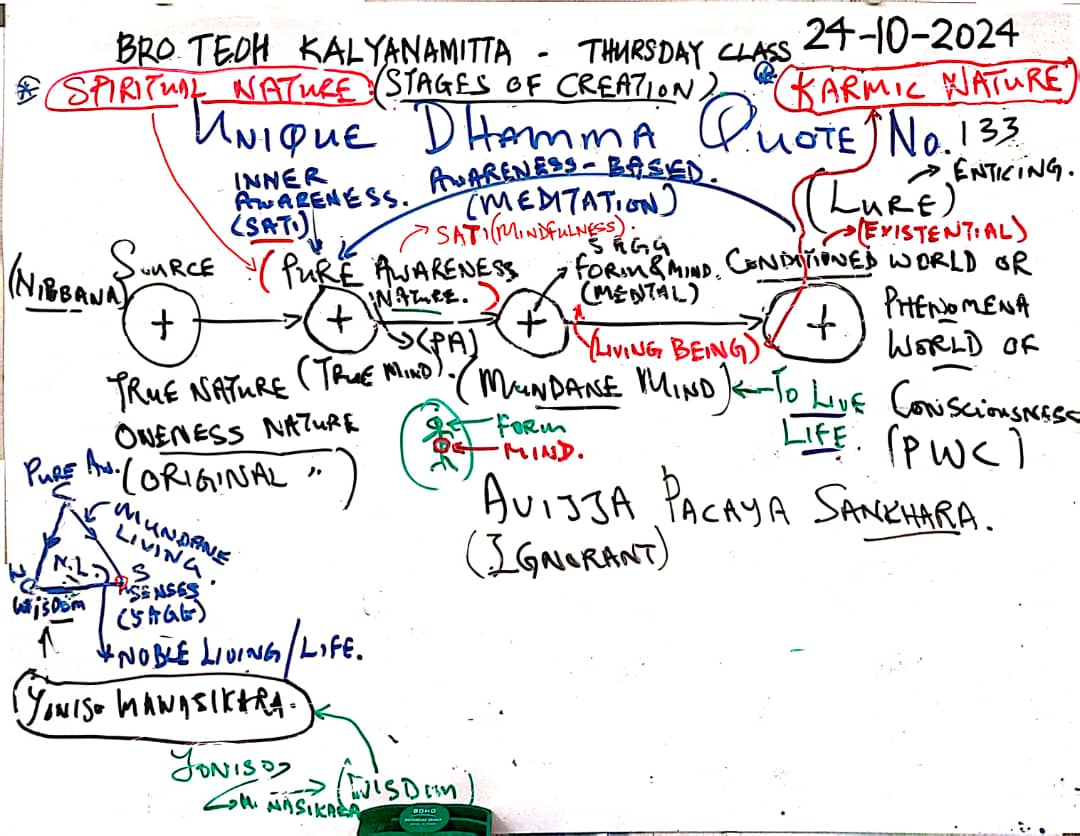 BRO. TEOH KALYANAMITTA - THURSDAY CLASS 24-10-2024
SPIRITUAL NATURE (STAGES OF CREATION) KARMIC NATURE
UNIQUE DHAMMA QUOTE No. 133
INNER AWARENESS. (SATI)
AWARENESS-BASED. (MEDITATION)
(LURE) → ENTICING.
(EXISTENTIAL)
SATI (MINDFULNESS).
(NIBBANA)
SOURCE
(PURE AWARENESS NATURE.)
(PA)
5 AGG
FORM & MIND.
(MENTAL)
CONDITIONED WORLD OR
PHENOMENA
WORLD OF
CONSCIOUSNESS
(PWC)
+ + + +
(LIVING BEING)
TRUE NATURE
(TRUE MIND).
(MUNDANE MIND)
TO LIVE
LIFE.
ONENESS NATURE
(ORIGINAL ")
FORM
MIND.
AVIJJA PACAYA SANKHARA.
(IGNORANT)
PURE AW.
MUNDANE
LIVING.
N.L.
W
S
WISDOM
SENSES
(5 AGG)
NOBLE LIVING/LIFE.
YONISO MANASIKARA.
YONISO
MANASIKARA → (WISDOM)